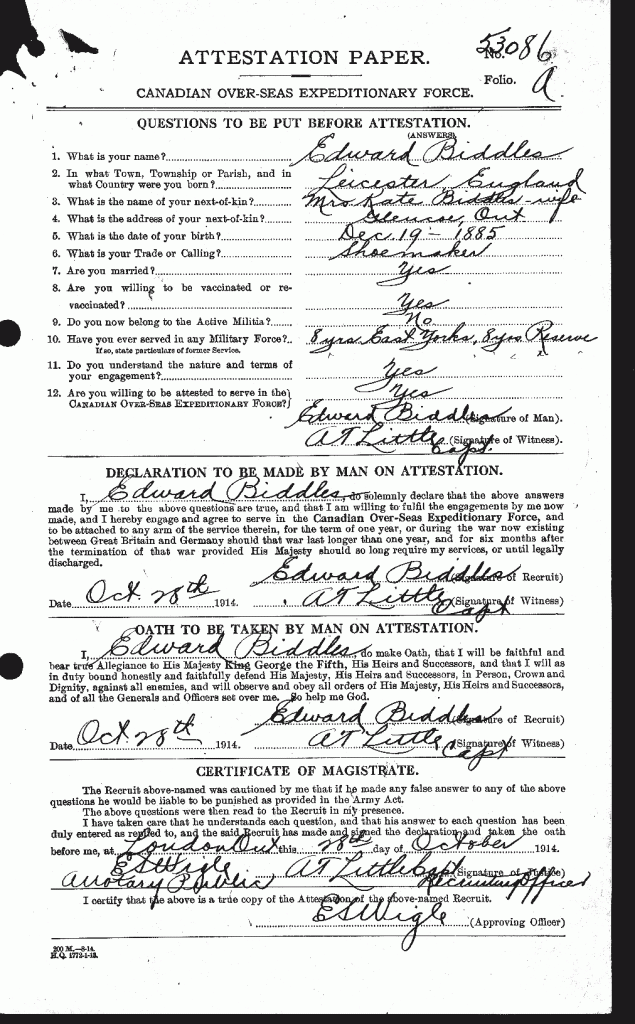 53086
No.
ATTESTATION PAPER.
Folio. A
CANADIAN OVER-SEAS EXPEDITIONARY FORCE.
QUESTIONS TO BE PUT BEFORE ATTESTATION.
(ANSWERS)
1. What is your name? Edward Biddles
2. In what Town, Township or Parish, and in
what Country were you born? Leicester, England
3. What is the name of your next-of-kin? Mrs Kate Biddles - wife
4. What is the address of your next-of-kin? Glencoe, Ont
5. What is the date of your birth? Dec 19 - 1885
6. What is your Trade or Calling? Shoemaker
7. Are you married? Yes
8. Are you willing to be vaccinated or re-
vaccinated? Yes
9. Do you now belong to the Active Militia? No
10. Have you ever served in any Military Force? 8 yrs East Yorks, 8 yrs Reserve
If so, state particulars of former Service.
11. Do you understand the nature and terms of
your engagement? Yes
12. Are you willing to be attested to serve in the Yes
CANADIAN OVER-SEAS EXPEDITIONARY FORCE?
Edward Biddles (Signature of Man).
A T Little Capt. (Signature of Witness).
DECLARATION TO BE MADE BY MAN ON ATTESTATION.
I, Edward Biddles, do solemnly declare that the above answers
made by me to the above questions are true, and that I am willing to fulfil the engagements by me now
made, and I hereby engage and agree to serve in the Canadian Over-Seas Expeditionary Force, and
to be attached to any arm of the service therein, for the term of one year, or during the war now existing
between Great Britain and Germany should that war last longer than one year, and for six months after
the termination of that war provided His Majesty should so long require my services, or until legally
discharged.
Edward Biddles (Signature of Recruit)
Date Oct 28th 1914. A T Little Capt (Signature of Witness)
OATH TO BE TAKEN BY MAN ON ATTESTATION.
I, Edward Biddles, do make Oath, that I will be faithful and
bear true Allegiance to His Majesty King George the Fifth, His Heirs and Successors, and that I will as
in duty bound honestly and faithfully defend His Majesty, His Heirs and Successors, in Person, Crown and
Dignity, against all enemies, and will observe and obey all orders of His Majesty, His Heirs and Successors,
and of all the Generals and Officers set over me. So help me God.
Edward Biddles (Signature of Recruit)
Date Oct 28th 1914. A T Little Capt (Signature of Witness)
CERTIFICATE OF MAGISTRATE.
The Recruit above-named was cautioned by me that if he made any false answer to any of the above
questions he would be liable to be punished as provided in the Army Act.
The above questions were then read to the Recruit in my presence.
I have taken care that he understands each question, and that his answer to each question has been
duly entered as replied to, and the said Recruit has made and signed the declaration and taken the oath
before me, at London Ont this 28th day of October 1914.
E S Wigle A T Little Capt (Signature of Justice)
A Notary Public Recruiting Officer
I certify that the above is a true copy of the Attestation of the above-named Recruit.
E S Wigle (Approving Officer)
200 M.—8-14.
H.Q. 1772-1-13.